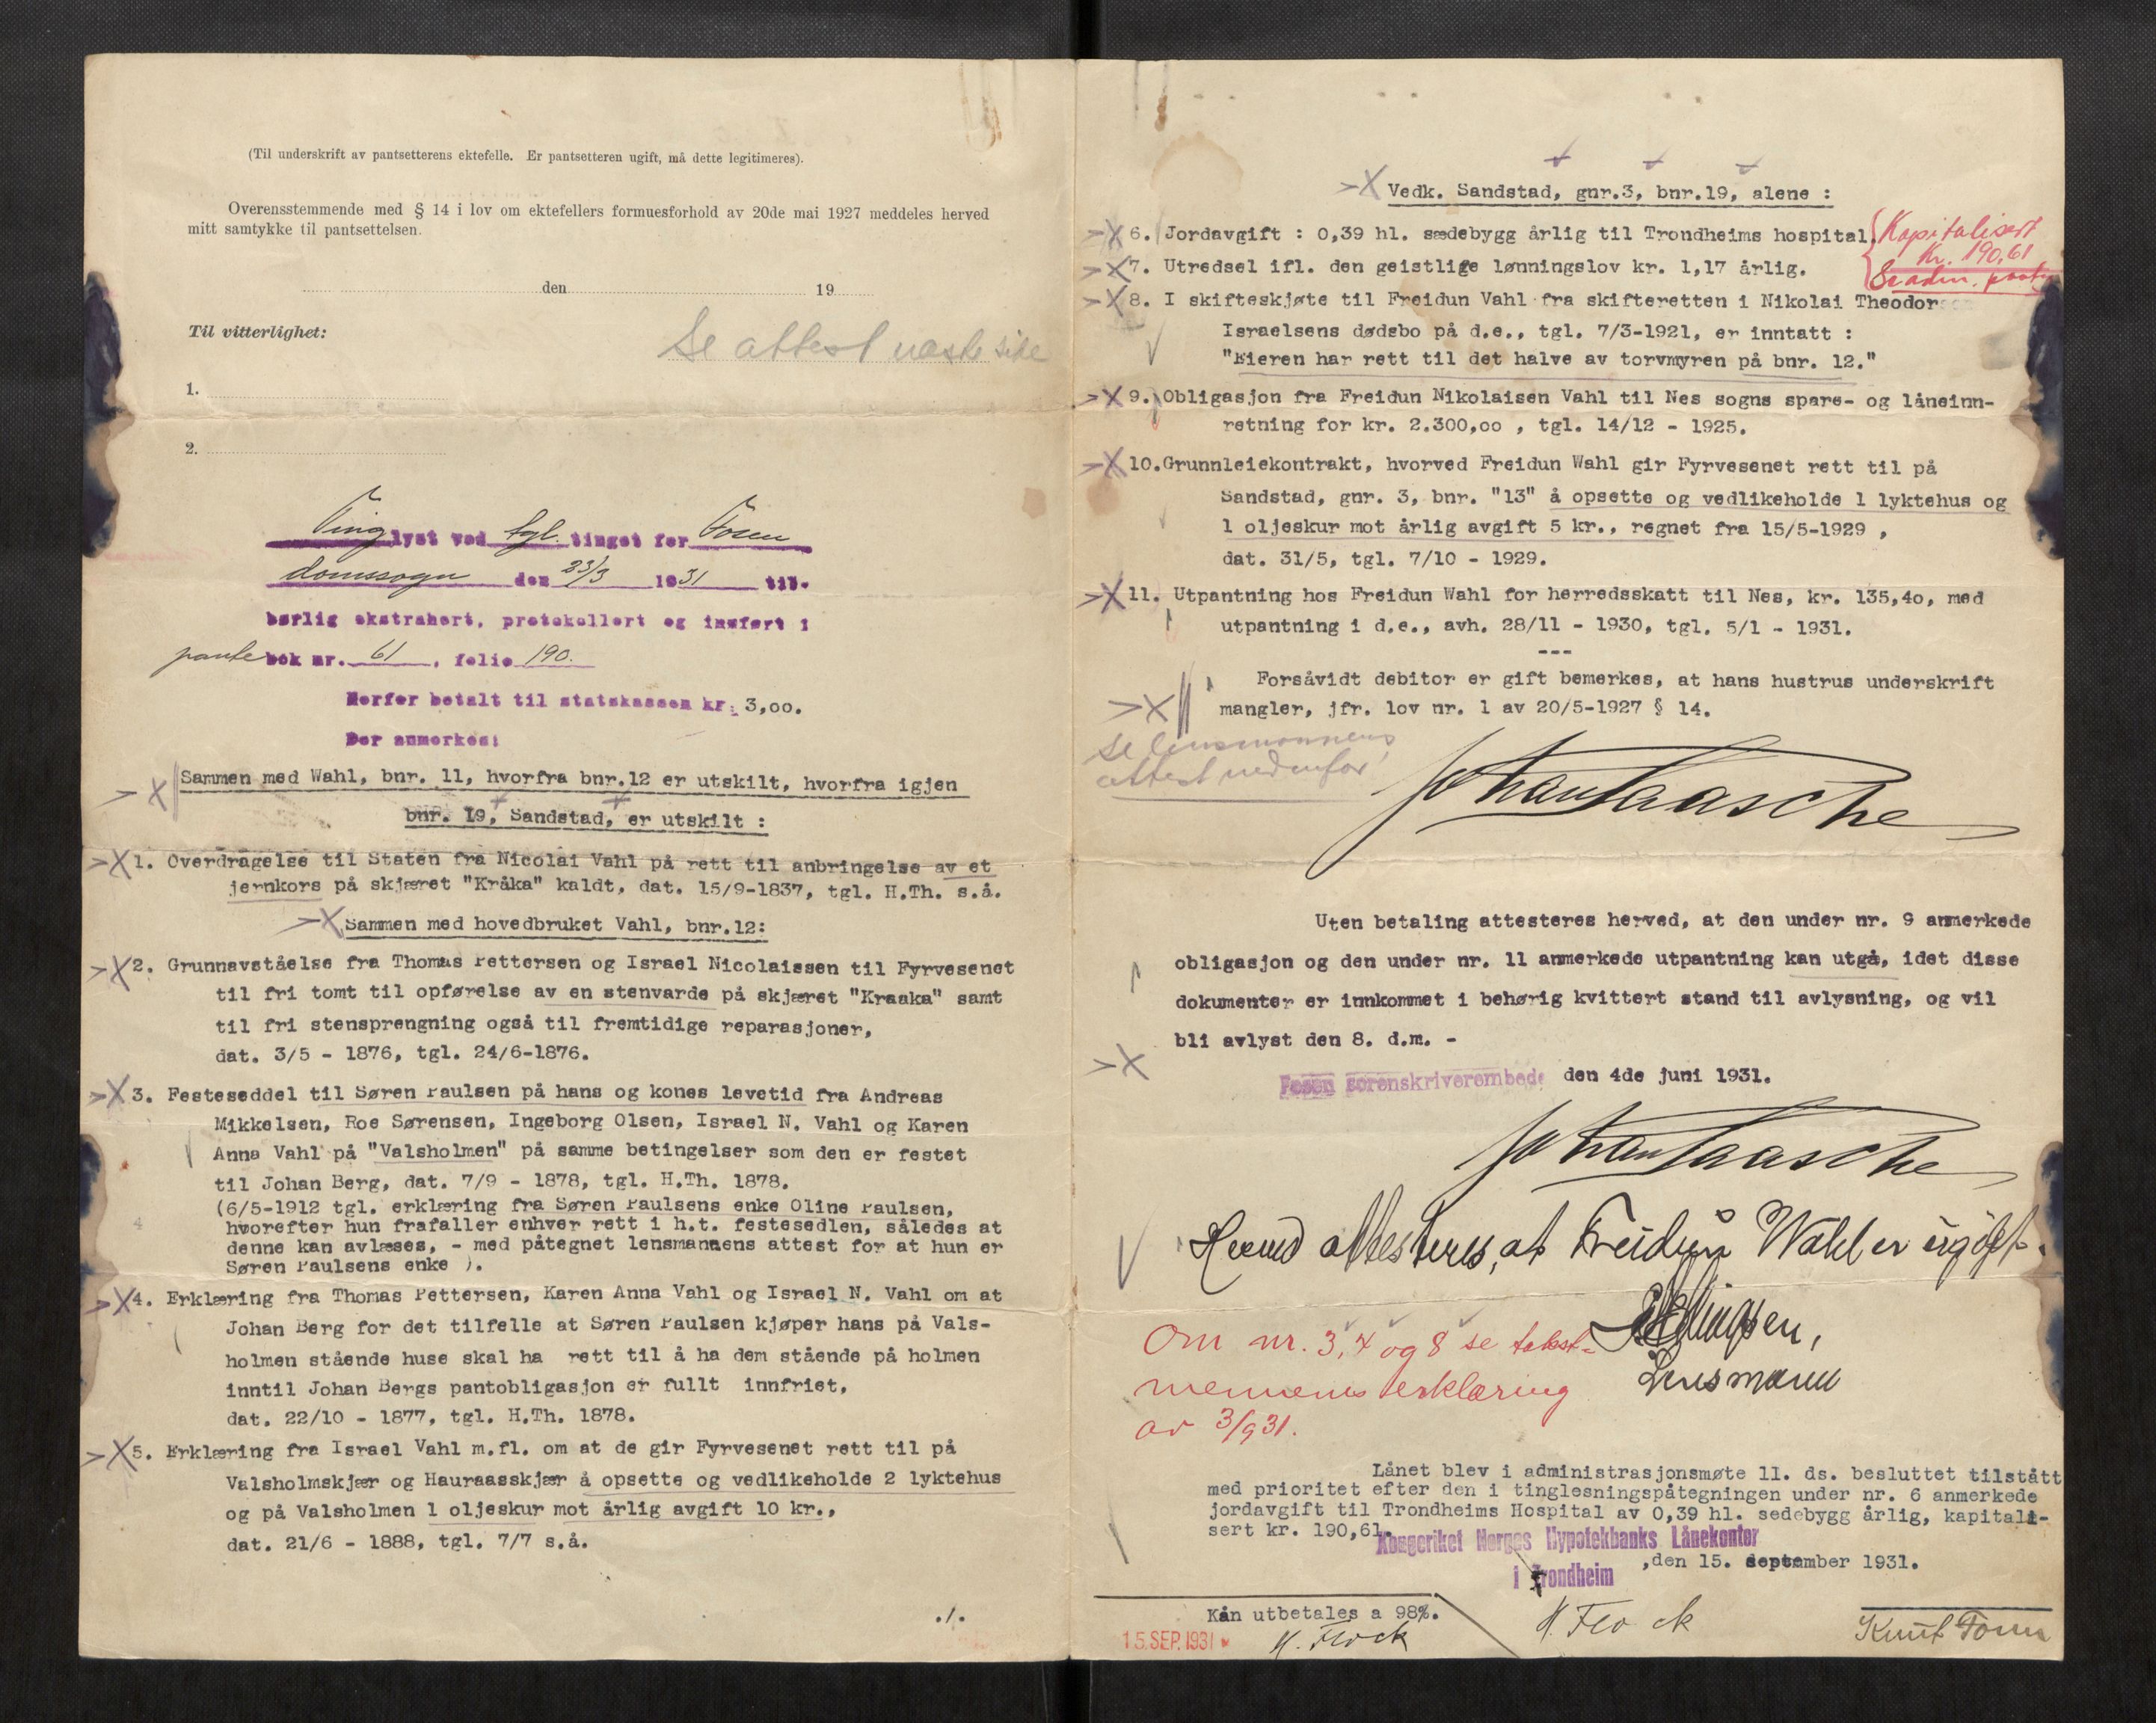 (Til underskrift av pantsetterens ektefelle. Er pantsetteren ugift, må dette legitimeres).
Overensstemmende med § 14 i lov om ektefellers formuesforhold av 20de mai 1927 meddeles herved
mitt samtykke til pantsettelsen.
den 19
Til vitterlighet:
Se attest næste side
1.
2.
Tinglyst ved tgl. tinget for Fosen
domssogn den 23/3 1931 til-
børlig ekstrahert, protokollert og innført i
pantebok nr. 61, folio 190.
Herfor betalt til statskassen kr. 3,00.
Der anmerkes:
Sammen med Wahl, bnr. 11, hvorfra bnr.12 er utskilt, hvorfra igjen
bnr. 19, Sandstad, er utskilt :
1. Overdragelse til Staten fra Nicolai Vahl på rett til anbringelse av et
jernkors på skjæret "Kråka" kaldt, dat. 15/9-1837, tgl. H.Th. s.å.
Sammen med hovedbruket Vahl, bnr.12:
2. Grunnavståelse fra Thomas Pettersen og Israel Nicolaissen til Fyrvesenet
til fri tomt til opførelse av en stenvarde på skjæret "Kraaka" samt
til fri stensprengning også til fremtidige reparasjoner,
dat. 3/5 - 1876, tgl. 24/6-1876.
3. Festeseddel til Søren Paulsen på hans og kones levetid fra Andreas
Mikkelsen, Roe Sørensen, Ingeborg Olsen, Israel N. Vahl og Karen
Anna Vahl på "Valsholmen" på samme betingelser som den er festet
til Johan Berg, dat. 7/9 - 1878, tgl. H.Th. 1878.
(6/5-1912 tgl. erklæring fra Søren Paulsens enke Oline Paulsen,
hvorefter hun frafaller enhver rett i h.t. festesedlen, således at
denne kan avlæses, - med påtegnet lensmannens attest for at hun er
Søren Paulsens enke ).
4. Erklæring fra Thomas Pettersen, Karen Anna Vahl og Israel N. Vahl om at
Johan Berg for det tilfelle at Søren Paulsen kjøper hans på Vals-
holmen stående huse skal ha rett til å ha dem stående på holmen
inntil Johan Bergs pantobligasjon er fullt innfriet,
dat. 22/10 - 1877, tgl. H.Th. 1878.
5. Erklæring fra Israel Vahl m.fl. om at de gir Fyrvesenet rett til på
Valsholmskjær og Hauraasskjær å opsette og vedlikeholde 2 lyktehus
og på Valsholmen 1 oljeskur mot årlig avgift 10 kr.,
dat. 21/6 - 1888, tgl. 7/7 s.å.
./.
Vedk. Sandstad, gnr.3, bnr.19, alene :
6. Jordavgift : 0,39 hl. sædebygg årlig til Trondheims hospital.
Kapitalisert
kr. 190,61
Se adm. påteg
7. Utredsel ifl. den geistlige lønningslov kr. 1,17 årlig.
8. I skifteskjøte til Freidun Vahl fra skifteretten i Nikolai Theodor
Israelsens dødsbo på d.e., tgl. 7/3-1921, er inntatt :
"Eieren har rett til det halve av torvmyren på bnr. 12."
9. Obligasjon fra Freidun Nikolaisen Vahl til Nes sogns spare- og låneinn-
retning for kr. 2.300,oo , tgl. 14/12 - 1925.
10.Grunnleiekontrakt, hvorved Freidun Wahl gir Fyrvesenet rett til på
Sandstad, gnr. 3, bnr. "13" å opsette og vedlikeholde 1 lyktehus og
1 oljeskur mot årlig avgift 5 kr., regnet fra 15/5-1929 ,
dat. 31/5, tgl. 7/10 - 1929.
11. Utpantning hos Freidun Wahl for herredsskatt til Nes, kr. 135,4o, med
utpantning i d.e., avh. 28/11 - 1930, tgl. 5/1 - 1931.
---
Forsåvidt debitor er gift bemerkes, at hans hustrus underskrift
mangler, jfr. lov nr. 1 av 20/5-1927 § 14.
Se lensmannens
attest nedenfor!
Johan Raasche
Uten betaling attesteres herved, at den under nr. 9 anmerkede
obligasjon og den under nr. 11 anmerkede utpantning kan utgå, idet disse
dokumenter er innkommet i behørig kvittert stand til avlysning, og vil
bli avlyst den 8. d.m. -
Fosen sorenskriverembede den 4de juni 1931.
Johan Raasche
Herved attesteres, at Freidun Wahl er ugift.
Ellingsen,
Lensmann
Om nr. 3, 4 og 8 se takst-
mennenes erklæring
av 3/9 31.
Lånet blev i administrasjonsmøte 11. ds. besluttet tilstått
med prioritet efter den i tinglesningspåtegningen under nr. 6 anmerkede
jordavgift til Trondheims Hospital av 0,39 hl. sedebygg årlig, kapitali-
sert kr. 190,61.
Kongeriket Norges Hypotekbanks Lånekontor
i Trondheim ,den 15. september 1931.
Kan utbetales a 98%.
15. SEP. 1931
H. Flock
H. Flock
Knut